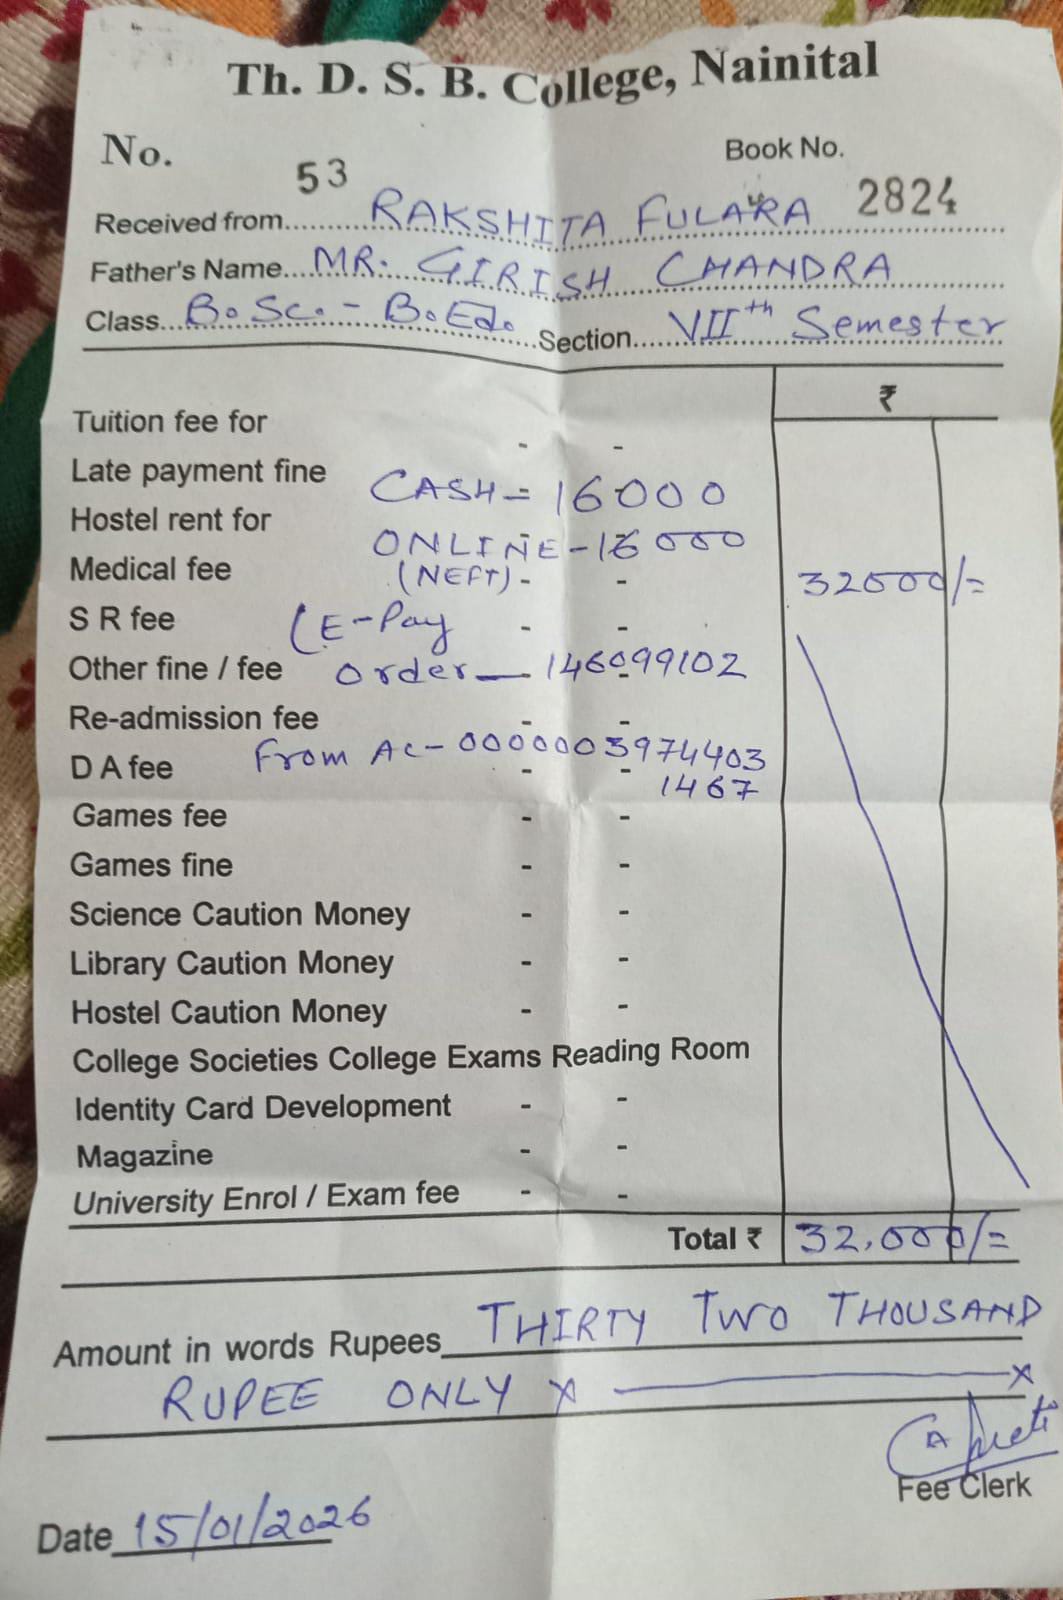 Th. D. S. B. College, Nainital
No. 53 Book No. 2824
Received from RAKSHITA FULARA
Father's Name MR. GIRISH CHANDRA
Class B.Sc. - B.Ed. Section VIIth Semester
₹
Tuition fee for - -
Late payment fine CASH = 16000
Hostel rent for ONLINE - 16000
Medical fee (NEFT) - - 32000/=
S R fee (E-Pay - -
Other fine / fee Order — 146099102
Re-admission fee - -
From AC - 0000003974403
D A fee - - 1467
Games fee - -
Games fine - -
Science Caution Money - -
Library Caution Money - -
Hostel Caution Money - -
College Societies College Exams Reading Room
Identity Card Development - -
Magazine - -
University Enrol / Exam fee - -
Total ₹ 32,000/=
Amount in words Rupees THIRTY TWO THOUSAND
RUPEE ONLY x ——— x
Fee Clerk
Date 15/01/2026